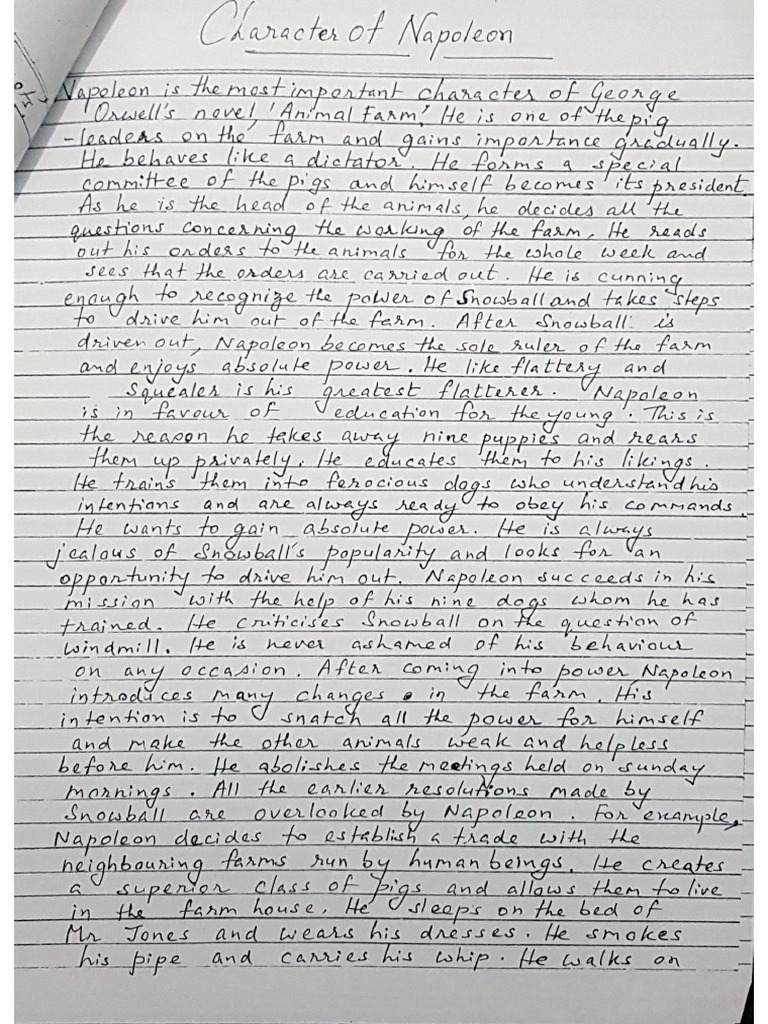 Character of Napoleon
Napoleon is the most important character of George
Orwell's novel, 'Animal Farm'. He is one of the pig
-leaders on the farm and gains importance gradually.
He behaves like a dictator. He forms a special
committee of the pigs and himself becomes its president.
As he is the head of the animals, he decides all the
questions concerning the working of the farm. He reads
out his orders to the animals for the whole week and
sees that the orders are carried out. He is cunning
enough to recognize the power of Snowball and takes steps
to drive him out of the farm. After Snowball is
driven out, Napoleon becomes the sole ruler of the farm
and enjoys absolute power. He like flattery and
Squealer is his greatest flatterer. Napoleon
is in favour of education for the young. This is
the reason he takes away nine puppies and rears
them up privately. He educates them to his likings.
He trains them into ferocious dogs who understand his
intentions and are always ready to obey his commands.
He wants to gain absolute power. He is always
jealous of Snowball's popularity and looks for an
opportunity to drive him out. Napoleon succeeds in his
mission with the help of his nine dogs whom he has
trained. He criticises Snowball on the question of
windmill. He is never ashamed of his behaviour
on any occasion. After coming into power, Napoleon
introduces many changes in the farm. His
intention is to snatch all the power for himself
and make the other animals weak and helpless
before him. He abolishes the meetings held on Sunday
mornings. All the earlier resolutions made by
Snowball are overlooked by Napoleon. For example,
Napoleon decides to establish a trade with the
neighbouring farms run by human beings. He creates
a superior class of pigs and allows them to live
in the farm house. He sleeps on the bed of
Mr Jones and wears his dresses. He smokes
his pipe and carries his whip. He walks on